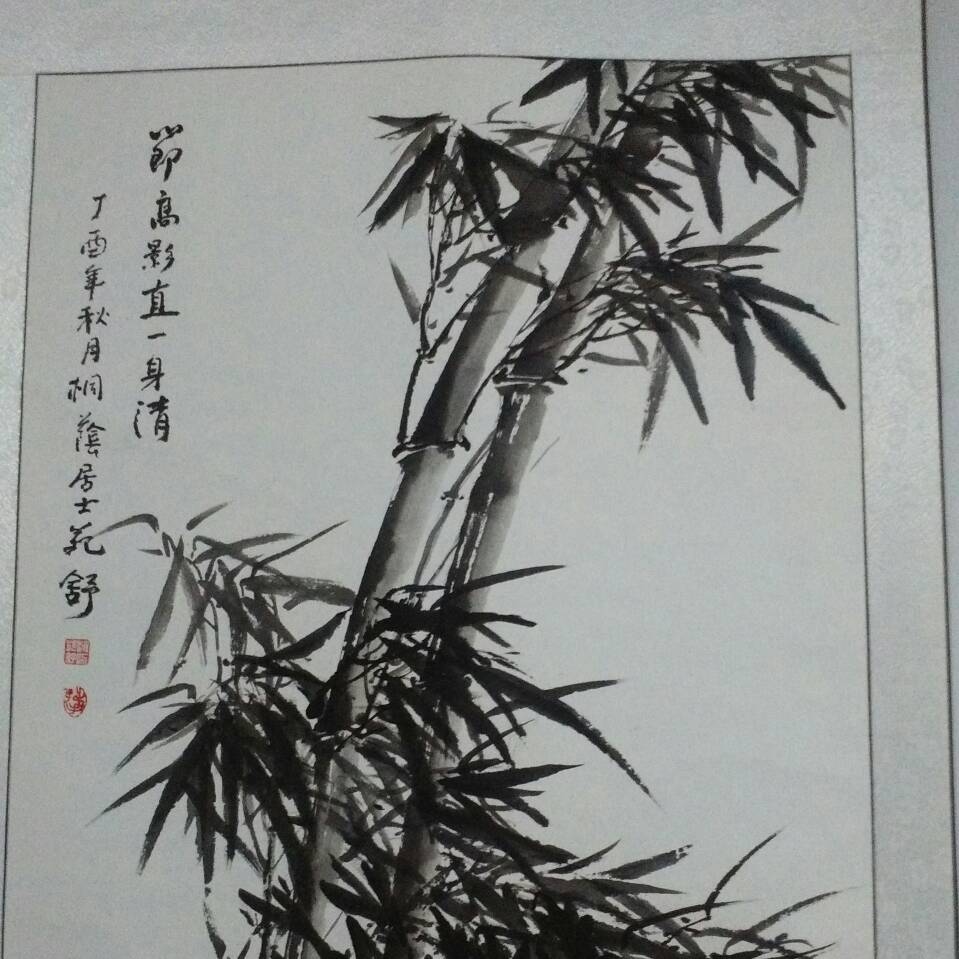 節高影直一身清
丁酉年秋月桐蔭居士苑舒